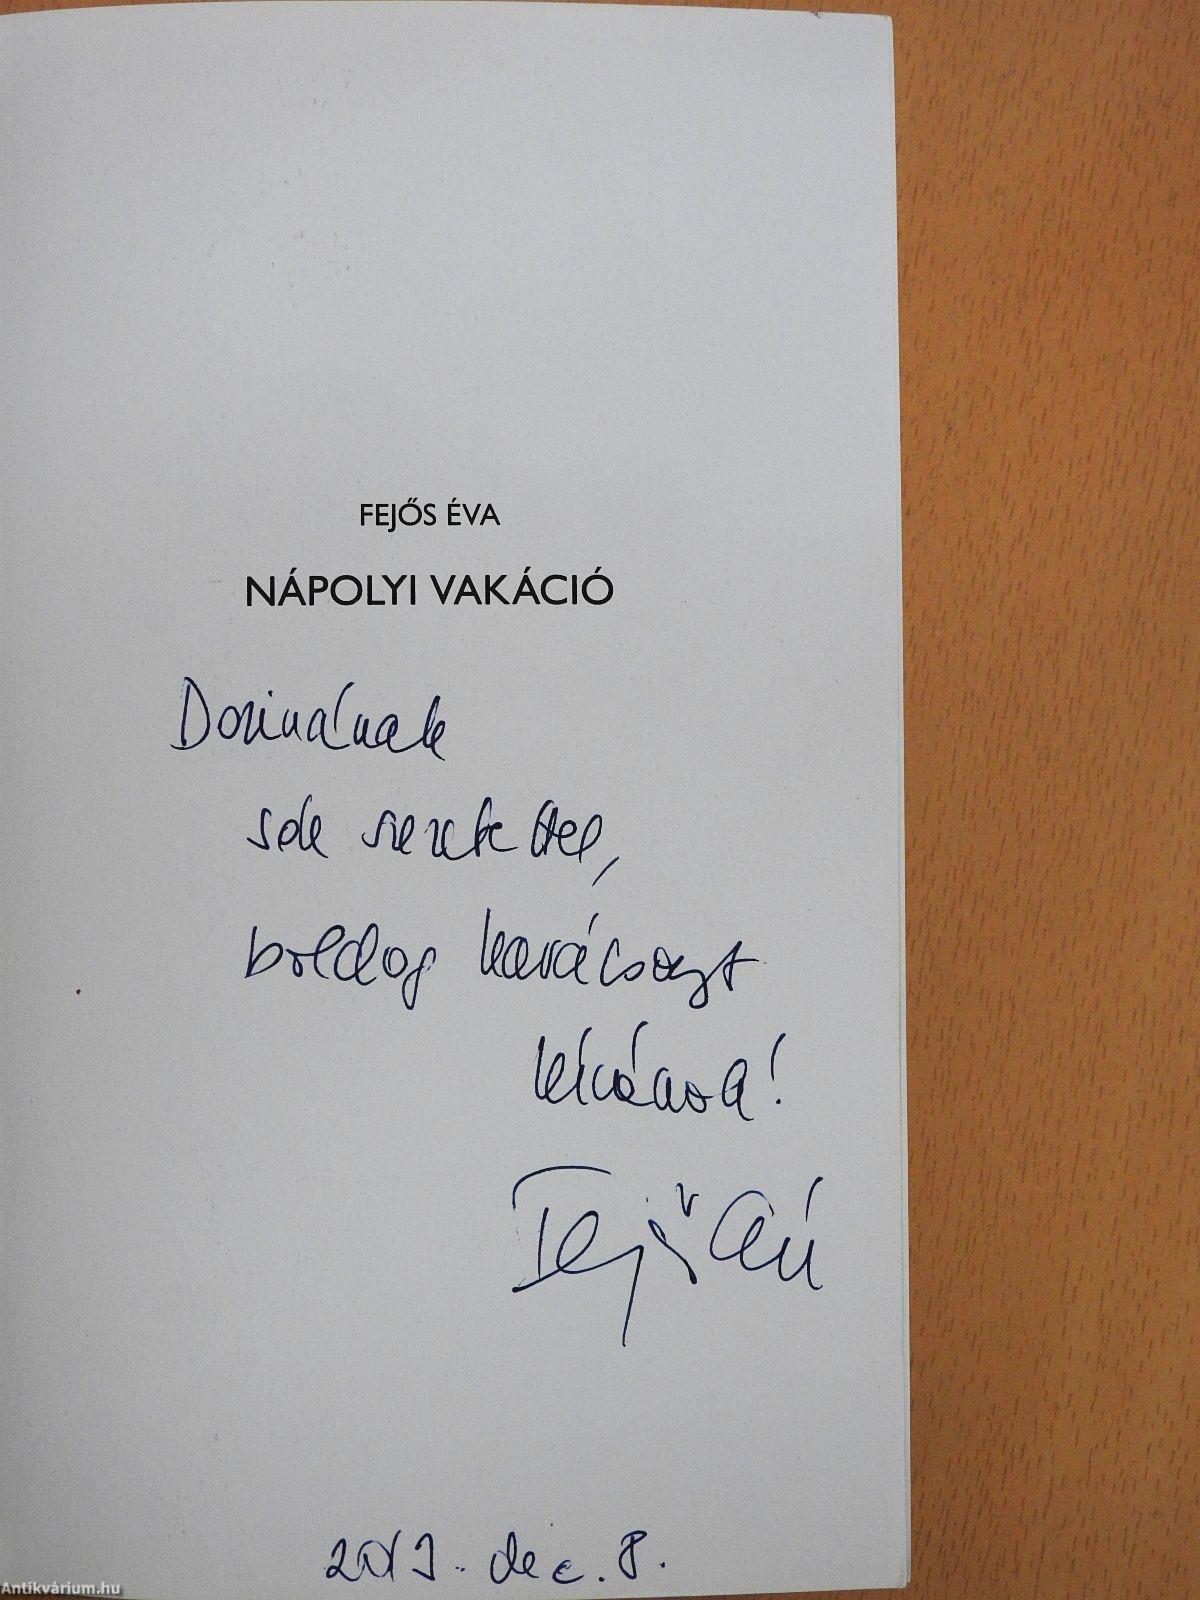 FEJŐS ÉVA
NÁPOLYI VAKÁCIÓ
Dorinának
sok szeretettel,
boldog karácsonyt
kívánva!
Fejős Éva
2013. dec. 8.
Antikvárium.hu